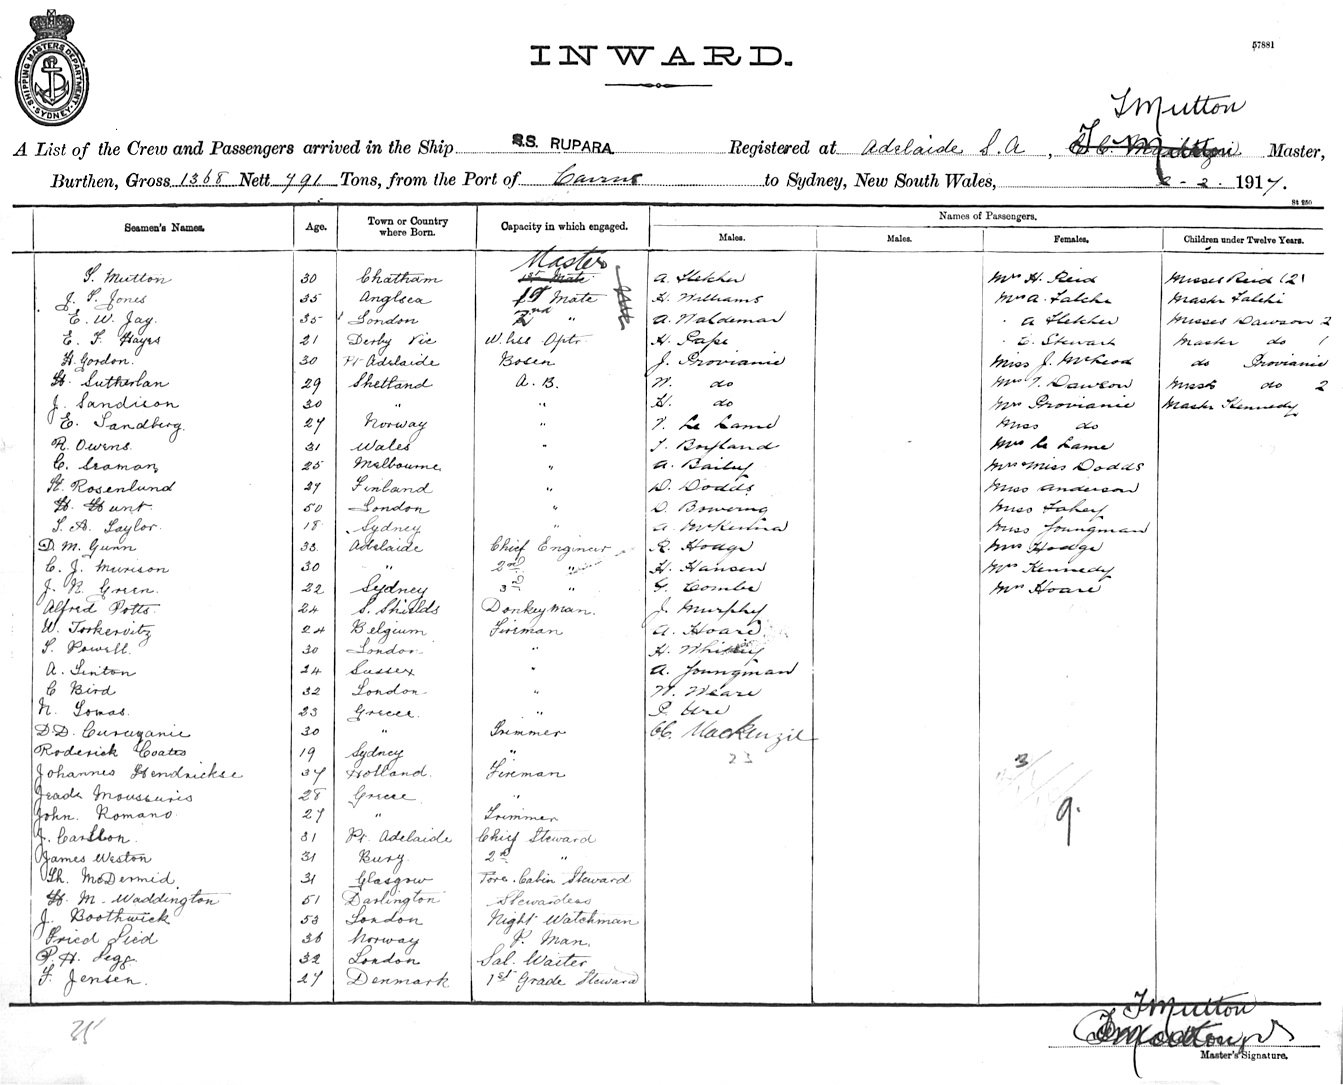 57881
SHIPPING MASTERS DEPARTMENT SYDNEY
INWARD.
T Mutton
A List of the Crew and Passengers arrived in the Ship S.S. RUPARA Registered at Adelaide S.A, Master,
Burthen, Gross 1368 Nett 791 Tons, from the Port of Cairns to Sydney, New South Wales, 2-2. 1917.
St 250
Seamen's Names. Age. Town or Country where Born. Capacity in which engaged. Names of Passengers.
Males. Males. Females. Children under Twelve Years.
Master
T. Mutton 30 Chatham 1st Mate A Fletcher Mrs H. Reid Misses Reid (2)
J. S. Jones 35 Anglsea 1st Mate H. Williams Mrs A. Falche Master Falchi
E. W. Jay. 35 London 2nd " A. Waldeman " A Fletcher Misses Dawson 2
E. F. Hayes 21 Derby Vic W.less Optr H. Pape " E. Stewart Master do 1
H. Gordon. 30 Pt Adelaide Bosen J. Provianie Miss J. McLeod do Provianie
H. Sutherlan 29 Shetland A. B. W. do Mrs T. Dawson Misses do 2
J. Sandison 30 " " H. do Mrs Provianie Master Kennedy
E. Sandberg. 27 Norway " V. Le Lame Miss do
R. Owens. 31 Wales " T. Boyland Mrs Le Lame
C. Seaman 25 Melbourne " A. Baily Miss Dodds
H. Rosenlund 27 Finland " D. Dodds Miss Anderson
H. Hunt. 50 London " D. Bowering Miss Fahey
S. A. Taylor. 18 Sydney " A. McKenna Miss Youngman
D. M. Gunn 33 Adelaide Chief Engineer R. Hodge Mrs Hodge
C. J. Murison 30 " 2nd " H. Hansen Mrs Kennedy
J. R. Green. 22 Sydney 3rd " G. Combe Mrs Hoare
Alfred Potts 24 S. Shields Donkeyman. J. Murphy
W. Torkervitz 24 Belgium Fireman A. Hoare.
S. Powell. 30 London " H.
A. Linton 24 Sussex " A. Youngman
C Bird 32 London " W. Weare
N. Lomas. 23 Greece " P. Ure
D.D. 30 " Trimmer CC. Mackenzie
Roderick Coates 19 Sydney " 23
Johannes Hendrickse 37 Holland. Fireman 3
Moussuris 28 Greece "
John. Romano 27 " Trimmer 9.
J. Carlson. 31 Pt. Adelaide Chief Steward
James Weston 31 Bury 2nd "
Th. McDermid. 31 Glasgow Fore. Cabin Steward
H. M. Waddington 51 Darlington Stewardess
J. Boothwick 53 London Night Watchman
Fried Lied 36 Norway P. Man.
P. H. Legg. 32 London Sal. Waiter
F. Jensen. 27 Denmark 1st Grade Steward
35
T Mutton
Master's Signature.